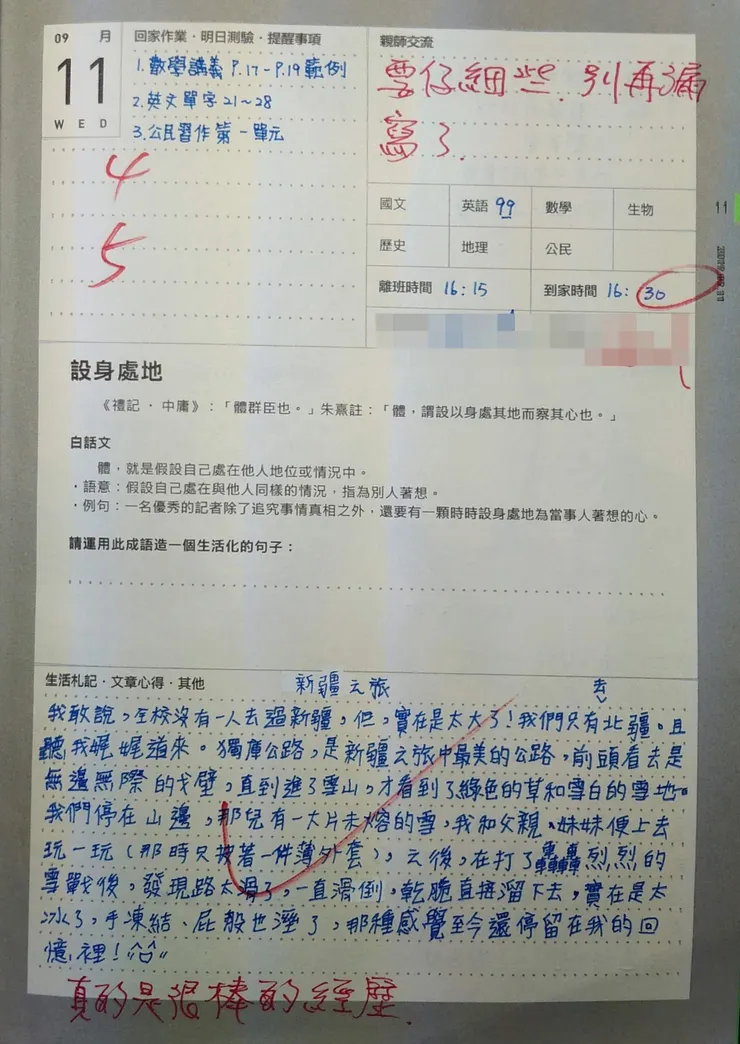 09 月
11
WED
回家作業·明日測驗·提醒事項
1. 數學講義 P.17-P.19 範例
2. 英文單字21~28
3. 公民習作第一單元
4
5
親師交流
要仔細些,別再漏
寫了.
國文 英語 99 數學 生物
歷史 地理 公民
離班時間 16:15 到家時間 16:30
11
設身處地
《禮記·中庸》:「體群臣也。」朱熹註:「體,謂設以身處其地而察其心也。」
白話文
體,就是假設自己處在他人地位或情況中。
·語意:假設自己處在與他人同樣的情況,指為別人著想。
·例句:一名優秀的記者除了追究事情真相之外,還要有一顆時時設身處地為當事人著想的心。
請運用此成語造一個生活化的句子:
生活札記·文章心得·其他
新疆之旅
去
我敢說,全校沒有一人去過新疆,但,實在是太大了!我們只有北疆。且
聽我娓娓道來。獨庫公路,是新疆之旅中最美的公路,前頭看去是
無邊無際的戈壁,直到進了雪山,才看到了綠色的草和雪白的雪地。
我們停在山邊,那兒有一大片未熔的雪,我和父親、妹妹便上去
玩一玩(那時只披著一件薄外套),之後,在打了轟轟烈烈的
雪戰後,發現路太滑了,一直滑倒,乾脆直接溜下去,實在是太
冰了,手凍結、屁股也溼了,那種感覺至今還停留在我的回
憶裡!
真的是很棒的經歷.